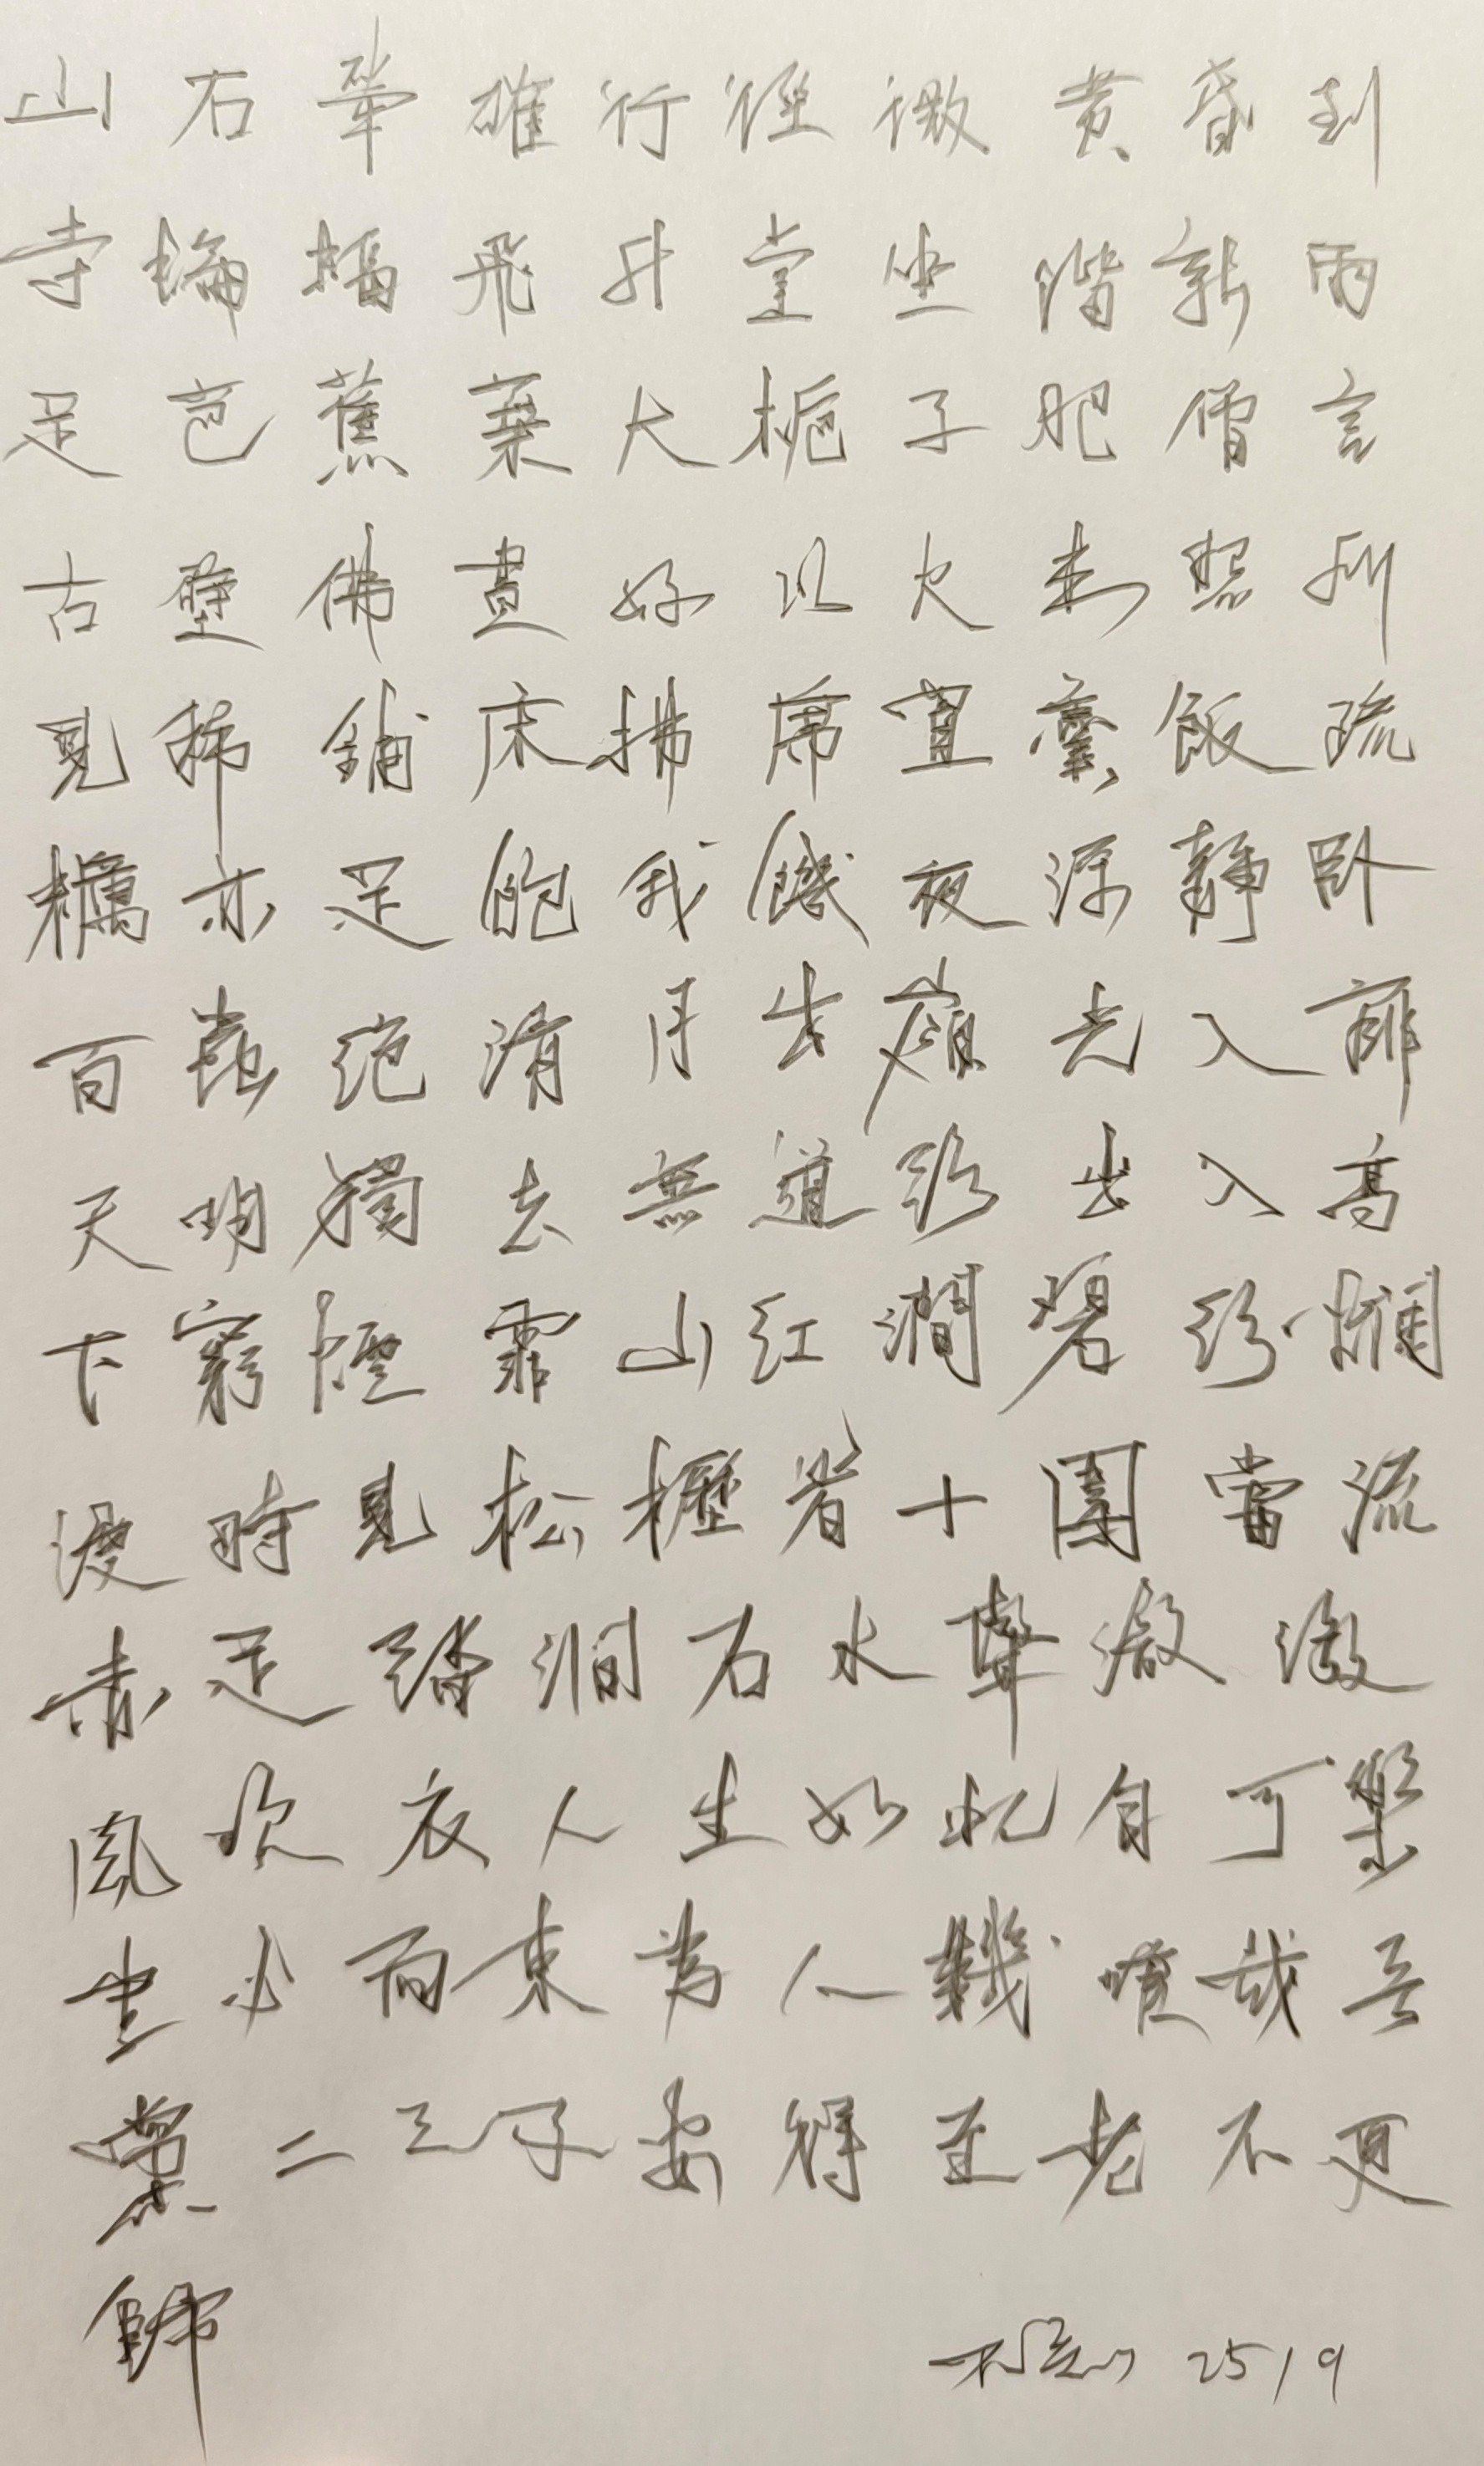 山石犖確行徑微黃昏到
寺蝙蝠飛升堂坐階新雨
足芭蕉葉大梔子肥僧言
古壁佛畫好以火來照所
見稀鋪床拂席置羹飯疏
糲亦足飽我饑夜深靜臥
百蟲絕清月出嶺光入扉
天明獨去無道路出入高
下窮煙霏山紅澗碧紛爛
漫時見松櫪皆十圍當流
赤足踏澗石水聲激激
風吹衣人生如此自可樂
豈必局束為人鞿嗟哉吾
黨二三子安得至老不更
歸
25/9